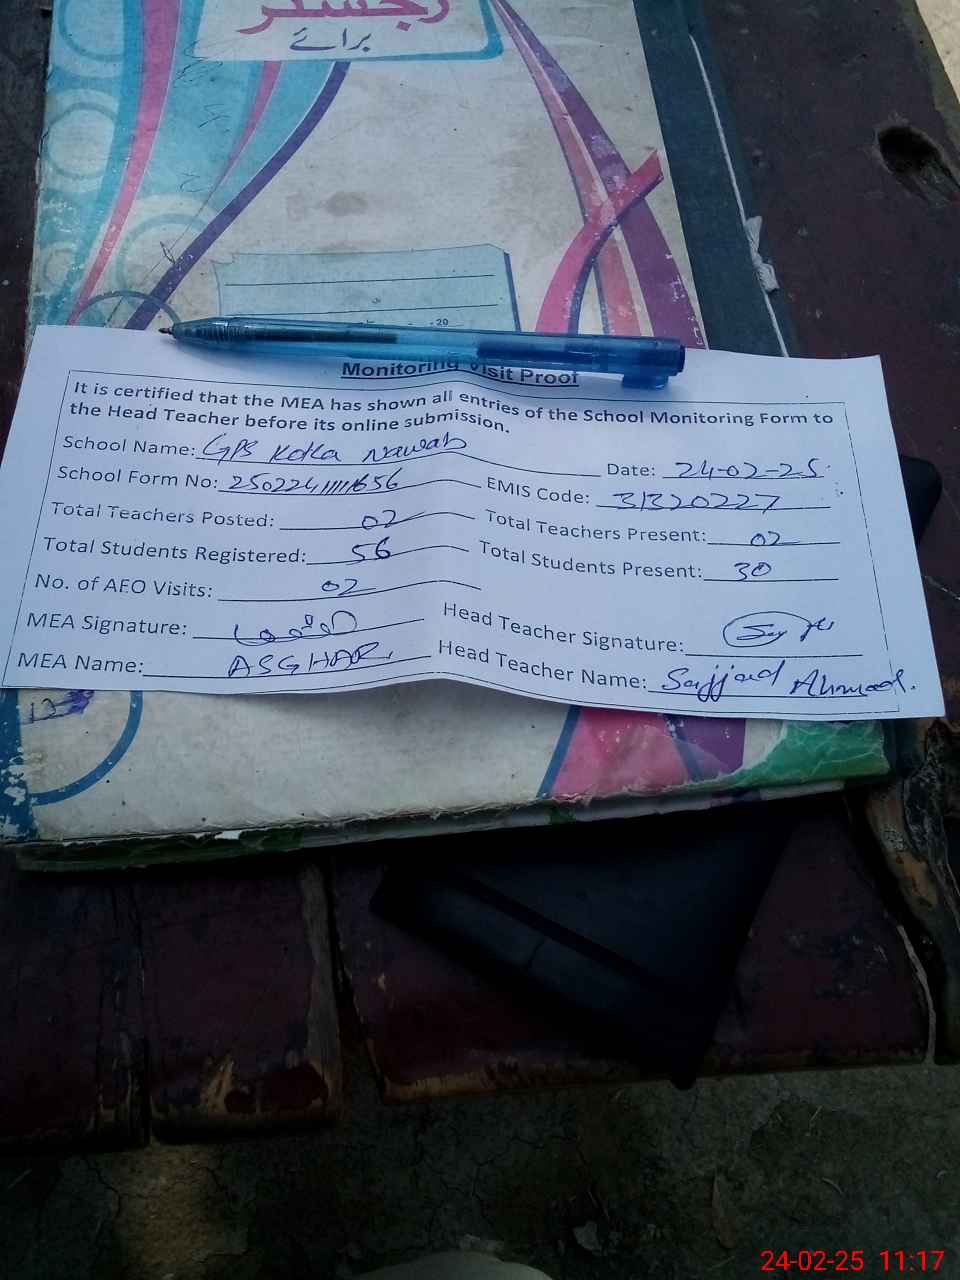 رجسٹر
برائے
20
Monitoring Visit Proof
It is certified that the MEA has shown all entries of the School Monitoring Form to
the Head Teacher before its online submission.
School Name: GPS Kotla Nawab Date: 24-02-25
School Form No: EMIS Code: 31320227
Total Teachers Posted: 02 Total Teachers Present: 02
Total Students Registered: 56 Total Students Present: 30
No. of AEO Visits: 02
MEA Signature: Head Teacher Signature:
MEA Name: ASGHAR Head Teacher Name: Sajjad Ahmad.
24-02-25 11:17